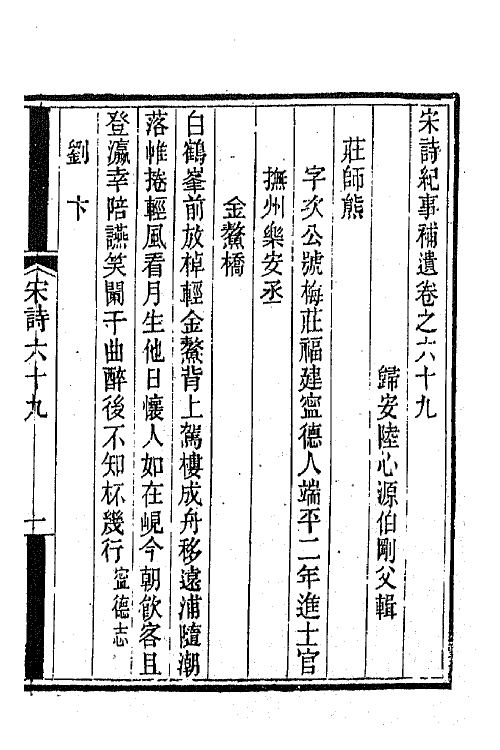 宋詩紀事補遺卷之六十九
歸安陸心源伯剛父輯
莊師熊
字次公號梅莊福建寧德人端平二年進士官
撫州樂安丞
金鰲橋
白鶴峯前放棹輕金鰲背上駕樓成舟移遠浦隨潮
落帷捲輕風看月生他日懷人如在峴今朝飲客且
登瀛幸陪讌笑闌干曲醉後不知杯幾行寧德志
劉卞
宋詩六十九
一